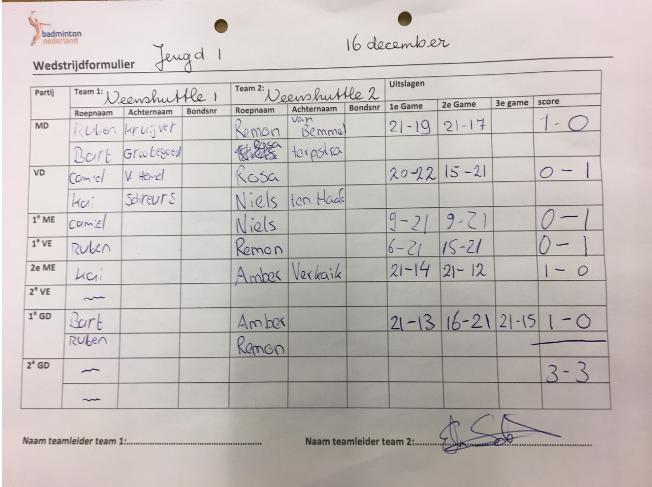 badminton
nederland
Wedstrijdformulier Jeugd 1 16 december
Partij Team 1: Veenshuttle 1 Team 2: Veenshuttle 2 Uitslagen
Roepnaam Achternaam Bondsnr Roepnaam Achternaam Bondsnr 1e Game 2e Game 3e game score
MD Ruben Kruijver Remon van Bemmel 21-19 21-17 1-0
Bart Grootegoed Rosa terpstra
VD Camiel v. Hemel Rosa 20-22 15-21 0-1
Kai Schreurs Niels ten Haaf
1e ME Camiel Niels 9-21 9-21 0-1
1e VE Ruben Remon 6-21 15-21 0-1
2e ME Kai Amber Verkaik 21-14 21-12 1-0
2e VE ~
1e GD Bart Amber 21-13 16-21 21-15 1-0
Ruben Remon
2e GD ~ 3-3
~
Naam teamleider team 1: Naam teamleider team 2: